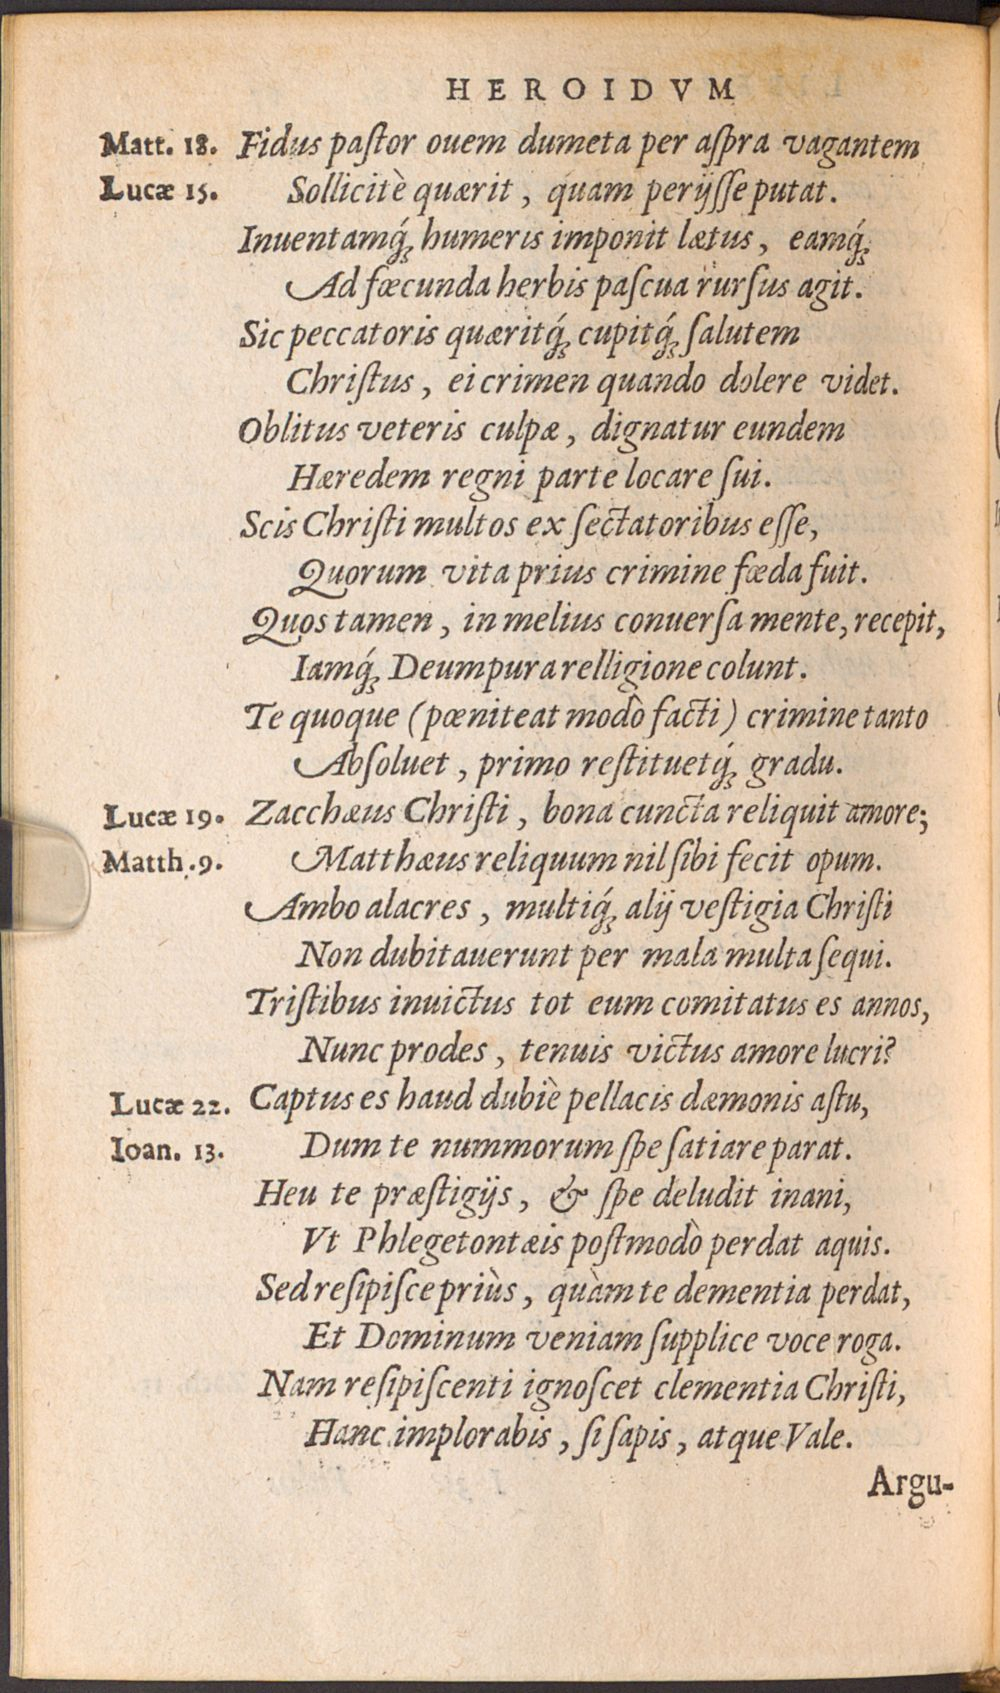 HEROIDVM
Matt. 18. Fidus paſtor ouem dumeta per aſpra vagantem
Lucæ 15. Sollicitè quærit, quam perijſſe putat.
Inuentamq́; humeris imponit lætus, eamq́;
Ad fœcunda herbis paſcua rurſus agit.
Sic peccatoris quæritq́; cupitq́; ſalutem
Chriſtus, ei crimen quando dolere videt.
Oblitus veteris culpæ, dignatur eundem
Hæredem regni parte locare ſui.
Scis Chriſti multos ex ſectatoribus eſſe,
Quorum vita prius crimine fœda fuit.
Quos tamen, in melius conuerſa mente, recepit,
Iamq́; Deum pura relligione colunt.
Te quoque (pœniteat modò facti) crimine tanto
Abſoluet, primo reſtituetq́; gradu.
Lucæ 19. Zacchæus Chriſti, bona cuncta reliquit amore;
Matth. 9. Matthæus reliquum nil ſibi fecit opum.
Ambo alacres, multiq́; alij veſtigia Chriſti
Non dubitauerunt per mala multa ſequi.
Triſtibus inuictus tot eum comitatus es annos,
Nunc prodes, tenuis victus amore lucri?
Lucæ 22. Captus es haud dubiè pellacis dæmonis aſtu,
Ioan. 13. Dum te nummorum ſpe ſatiare parat.
Heu te præſtigijs, & ſpe deludit inani,
Vt Phlegetontæis poſtmodò perdat aquis.
Sed reſipiſce priùs, quàm te dementia perdat,
Et Dominum veniam ſupplice voce roga.
Nam reſipiſcenti ignoſcet clementia Chriſti,
Hanc implorabis, ſi ſapis, atque Vale.
Argu-